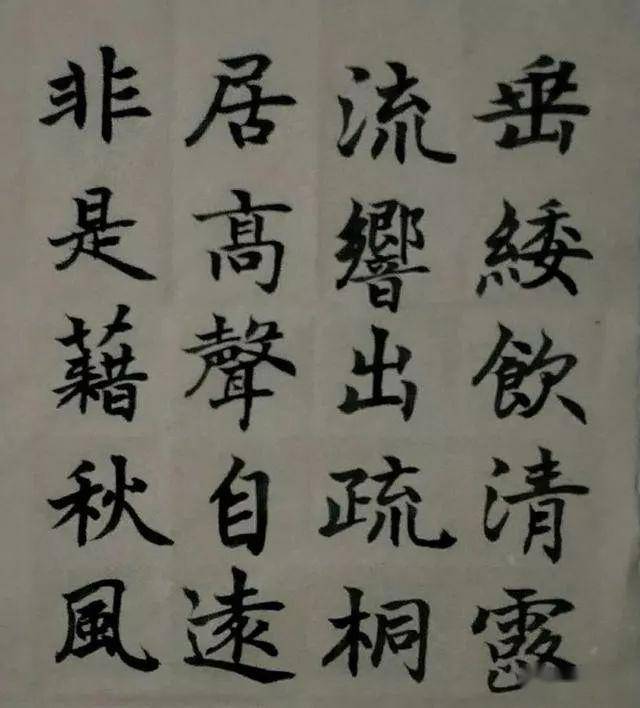 垂緌飲清露
流響出疏桐
居高聲自遠
非是藉秋風